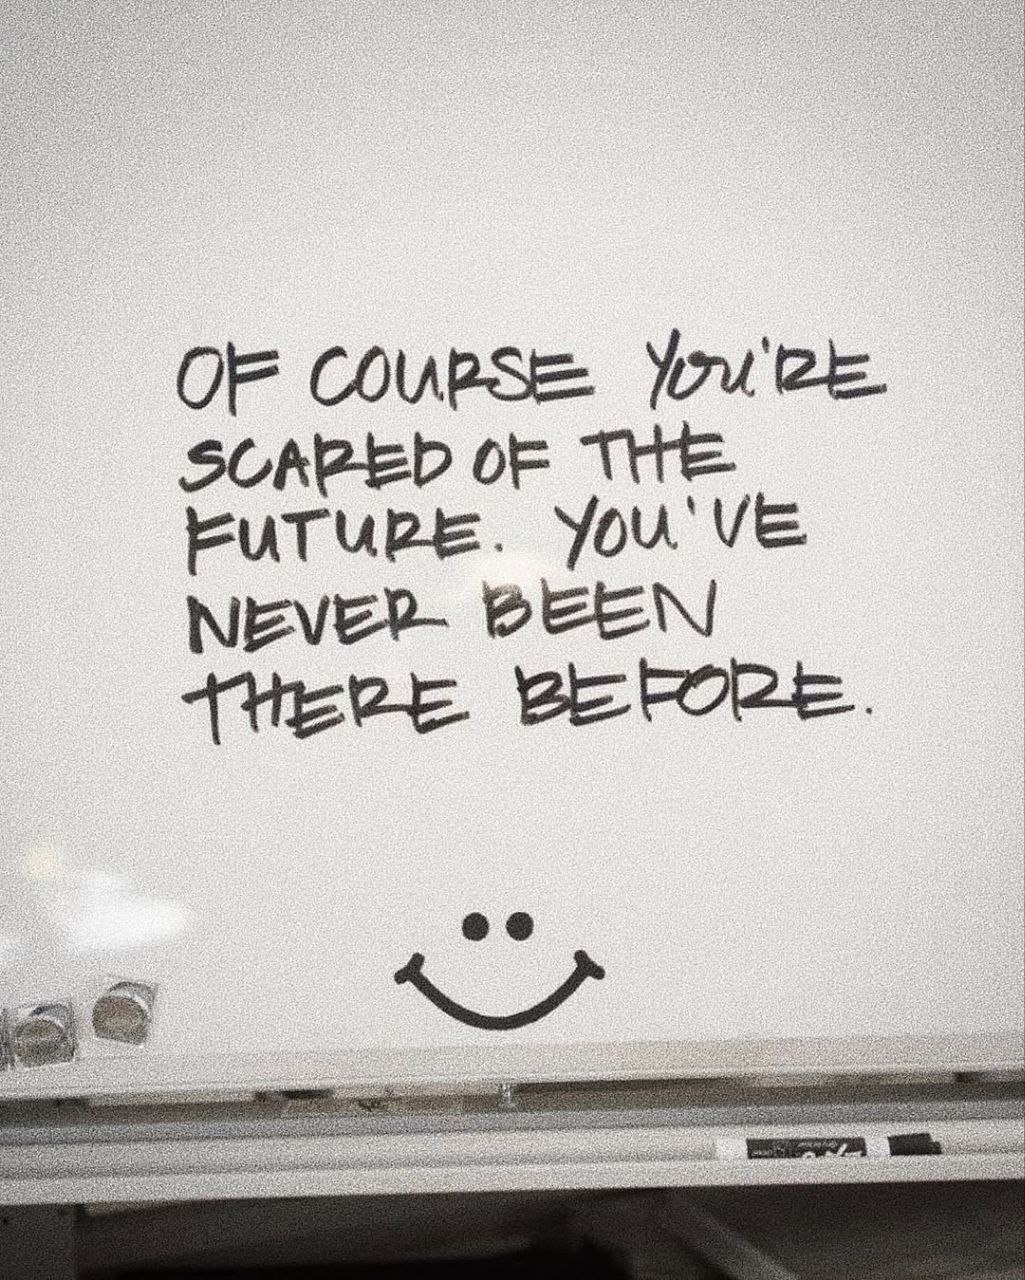 OF COURSE YOU'RE
SCARED OF THE
FUTURE. YOU'VE
NEVER BEEN
THERE BEFORE.